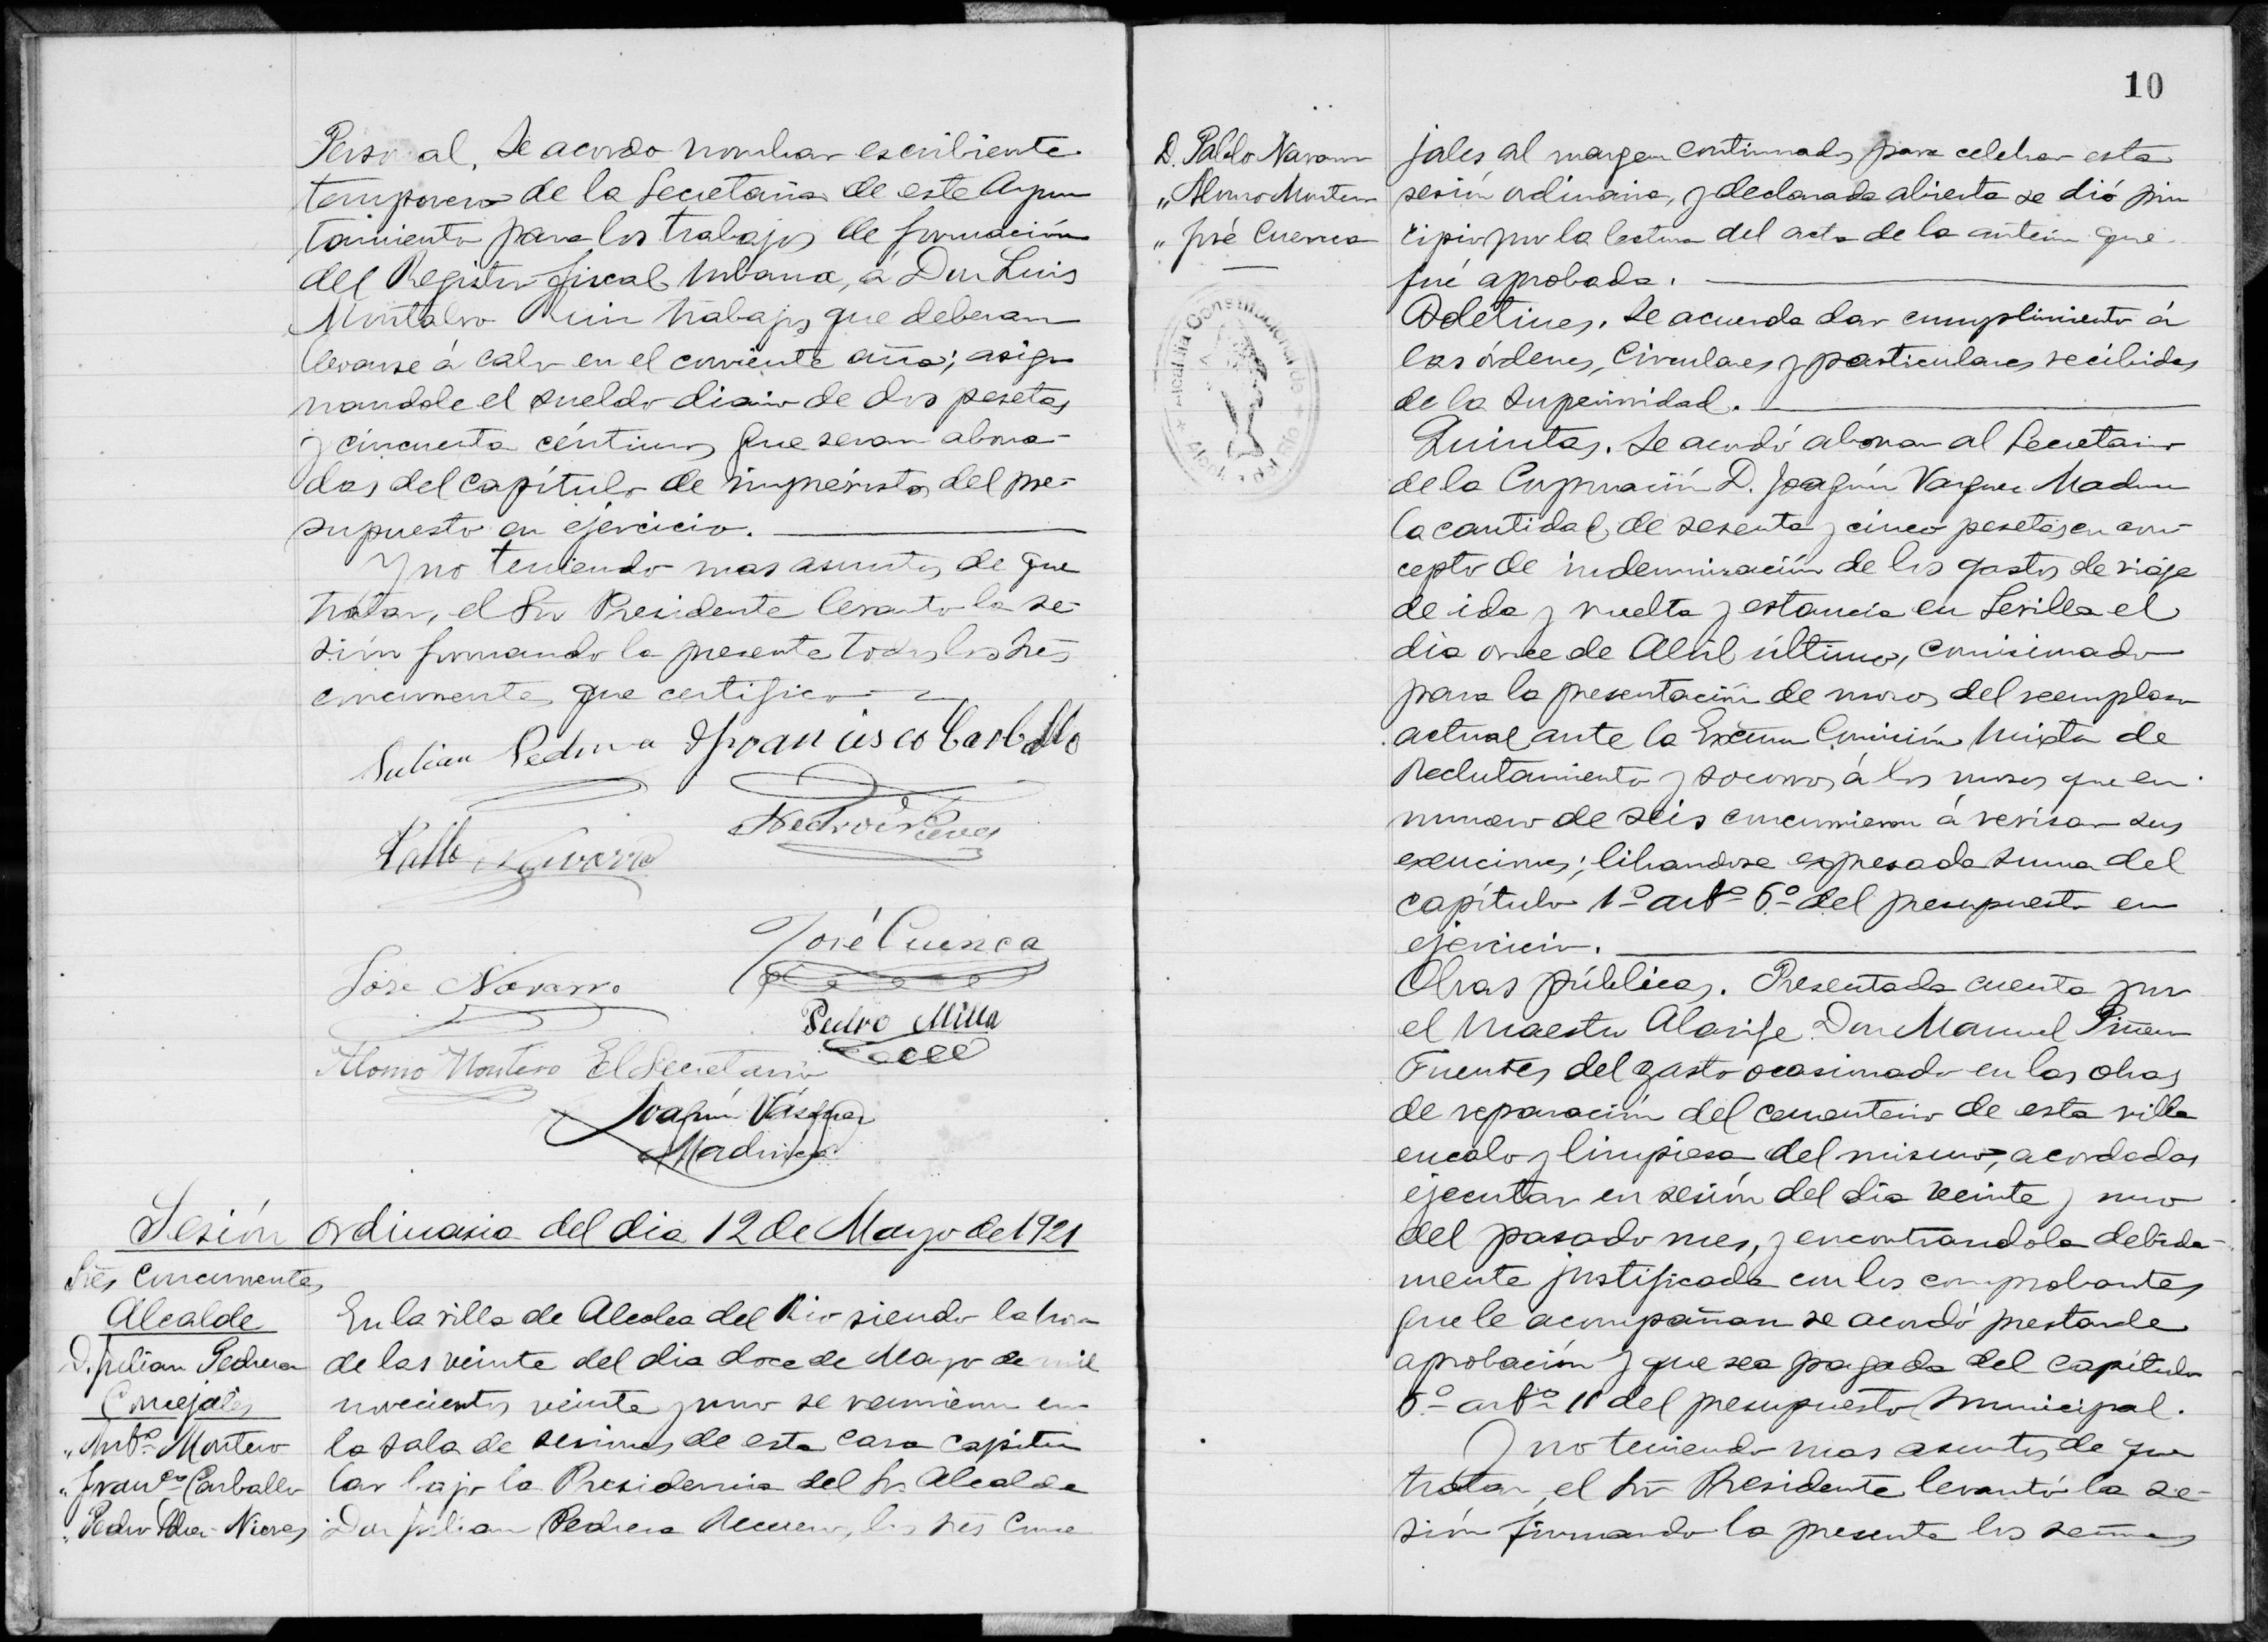 Personal. Se acordo nombrar escribiente
temporero de la Secretaria de este Ayun
tamiento para los trabajos de formación
del Registro fiscal urbana, á Don Luis
Montalvo trabajos que deberan
llevarse á cabo en el corriente año; asig
nandole el sueldo diario de dos pesetas
y cincuenta céntimos que seran abona-
dos del capítulo de imprevistos del pre-
supuesto en ejercicio.
Y no teniendo mas asuntos de que
tratar, el Sr Presidente levanto la se-
sión firmando la presente todos los Sres
concurrentes que certifico
Julian Pedrera Francisco Carballo
Pablo Navarro
Pedro Nieves
José Cuenca
Jose Navarro
Pedro Milla
Alonso Montero El Secretario
Joaquín Vásquez
Madueño
Sesión ordinaria del dia 12 de Mayo de 1921
Sres Concurrentes
Alcalde
D. Julian Pedrera
Concejales
" Antº Montero
" Franco Carballo
" Pedro Nieves
En la villa de Alcolea del Rio siendo la hora
de las veinte del dia doce de Mayo de mil
novecientos veinte y uno se reunieron en
la sala de sesiones de esta casa capitu
lar bajo la Presidencia del Sr Alcalde
Don Julian Pedrera Recuero, los Sres Conce
10
D. Pablo Navarro
" Alonso Montero
" José Cuenca
Alcaldía Constitucional de
Alcolea del Rio
jales al margen continuados para celebrar esta
sesión ordinaria, y declarada abierta se dió prin
cipio por la lectura del acta de la anterior que
fué aprobada.
Boletines. Se acuerda dar cumplimiento á
las órdenes, Circulares y particulares recibidas
de la superioridad.
Quintas. Se acordó abonar al Secretario
de la Corporación D. Joaquín Vazquez Madueño
la cantidad de sesenta y cinco pesetas en con-
cepto de indemnización de los gastos de viaje
de ida y vuelta y estancia en Sevilla el
dia once de Abril último, comisionado
para la presentación de mozos del reemplazo
actual ante la Excma Comisión Mixta de
Reclutamiento y socorros á los mozos que en
numero de seis concurrieron á revisar sus
exenciones; librandose expresada suma del
capítulo 1º artº 6º del presupuesto en
ejercicio.
Obras públicas. Presentada cuenta por
el Maestro Alarife Don Manuel Piñero
Fuentes del gasto ocasionado en las obras
de reparación del cementerio de esta villa
encalo y limpieza del mismo, acordadas
ejecutar en sesión del dia veinte y uno
del pasado mes, y encontrandola debida-
mente justificada con los comprobantes
que le acompañan se acordó prestarle
aprobación y que sea pagada del capítulo
6º artº 11 del presupuesto municipal.
Y no teniendo mas asuntos de que
tratar, el Sr Presidente levantó la se-
sión firmando la presente los señores